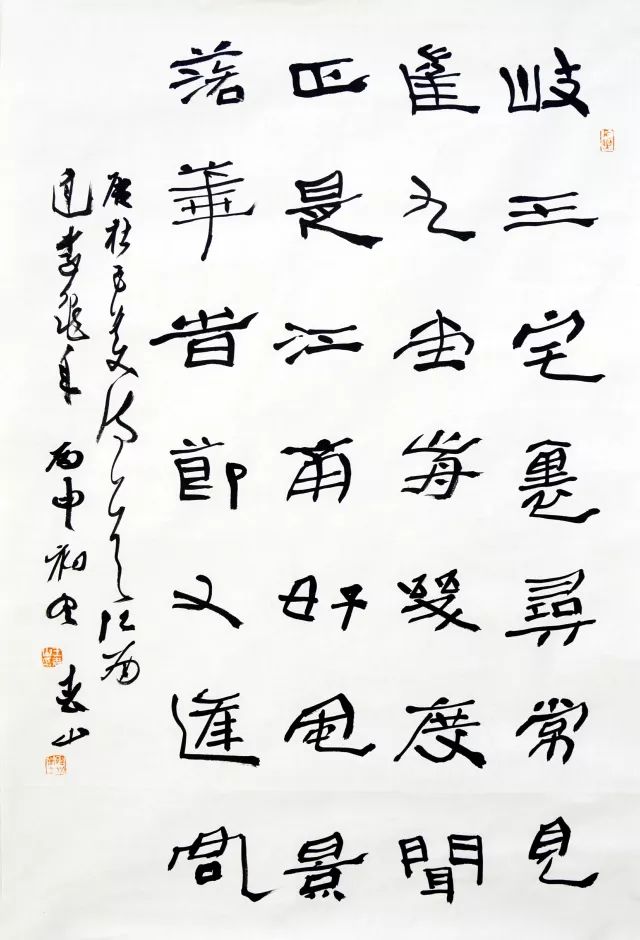 岐王宅裏尋常見
崔九坣歬幾度聞
正是江南好風景
落華旹節又逢君
唐杜子美詩江南
逢李龜年 丙申初 山